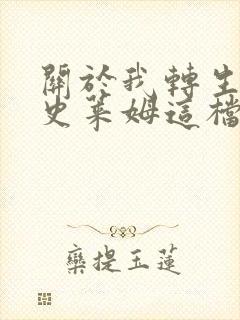 關於我轉生
史萊姆這檔
欒提玉蓮